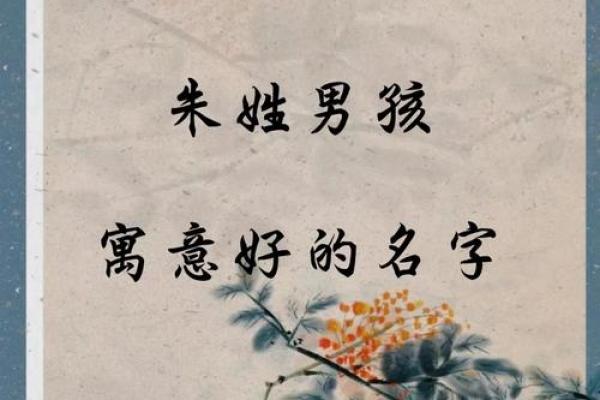 朱姓男孩
寓意好的名字